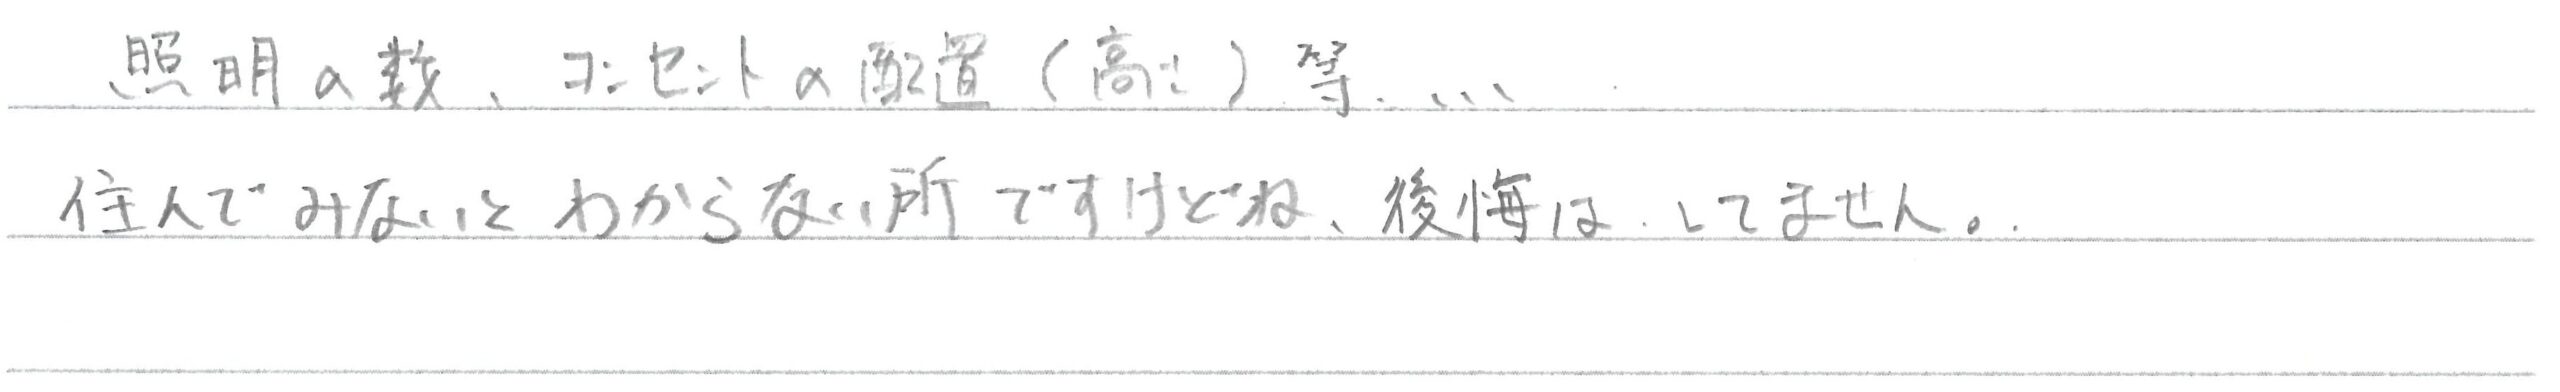 照明の数、コンセントの配置(高さ)等....
住んでみないとわからない所ですけどね、後悔はしてません。